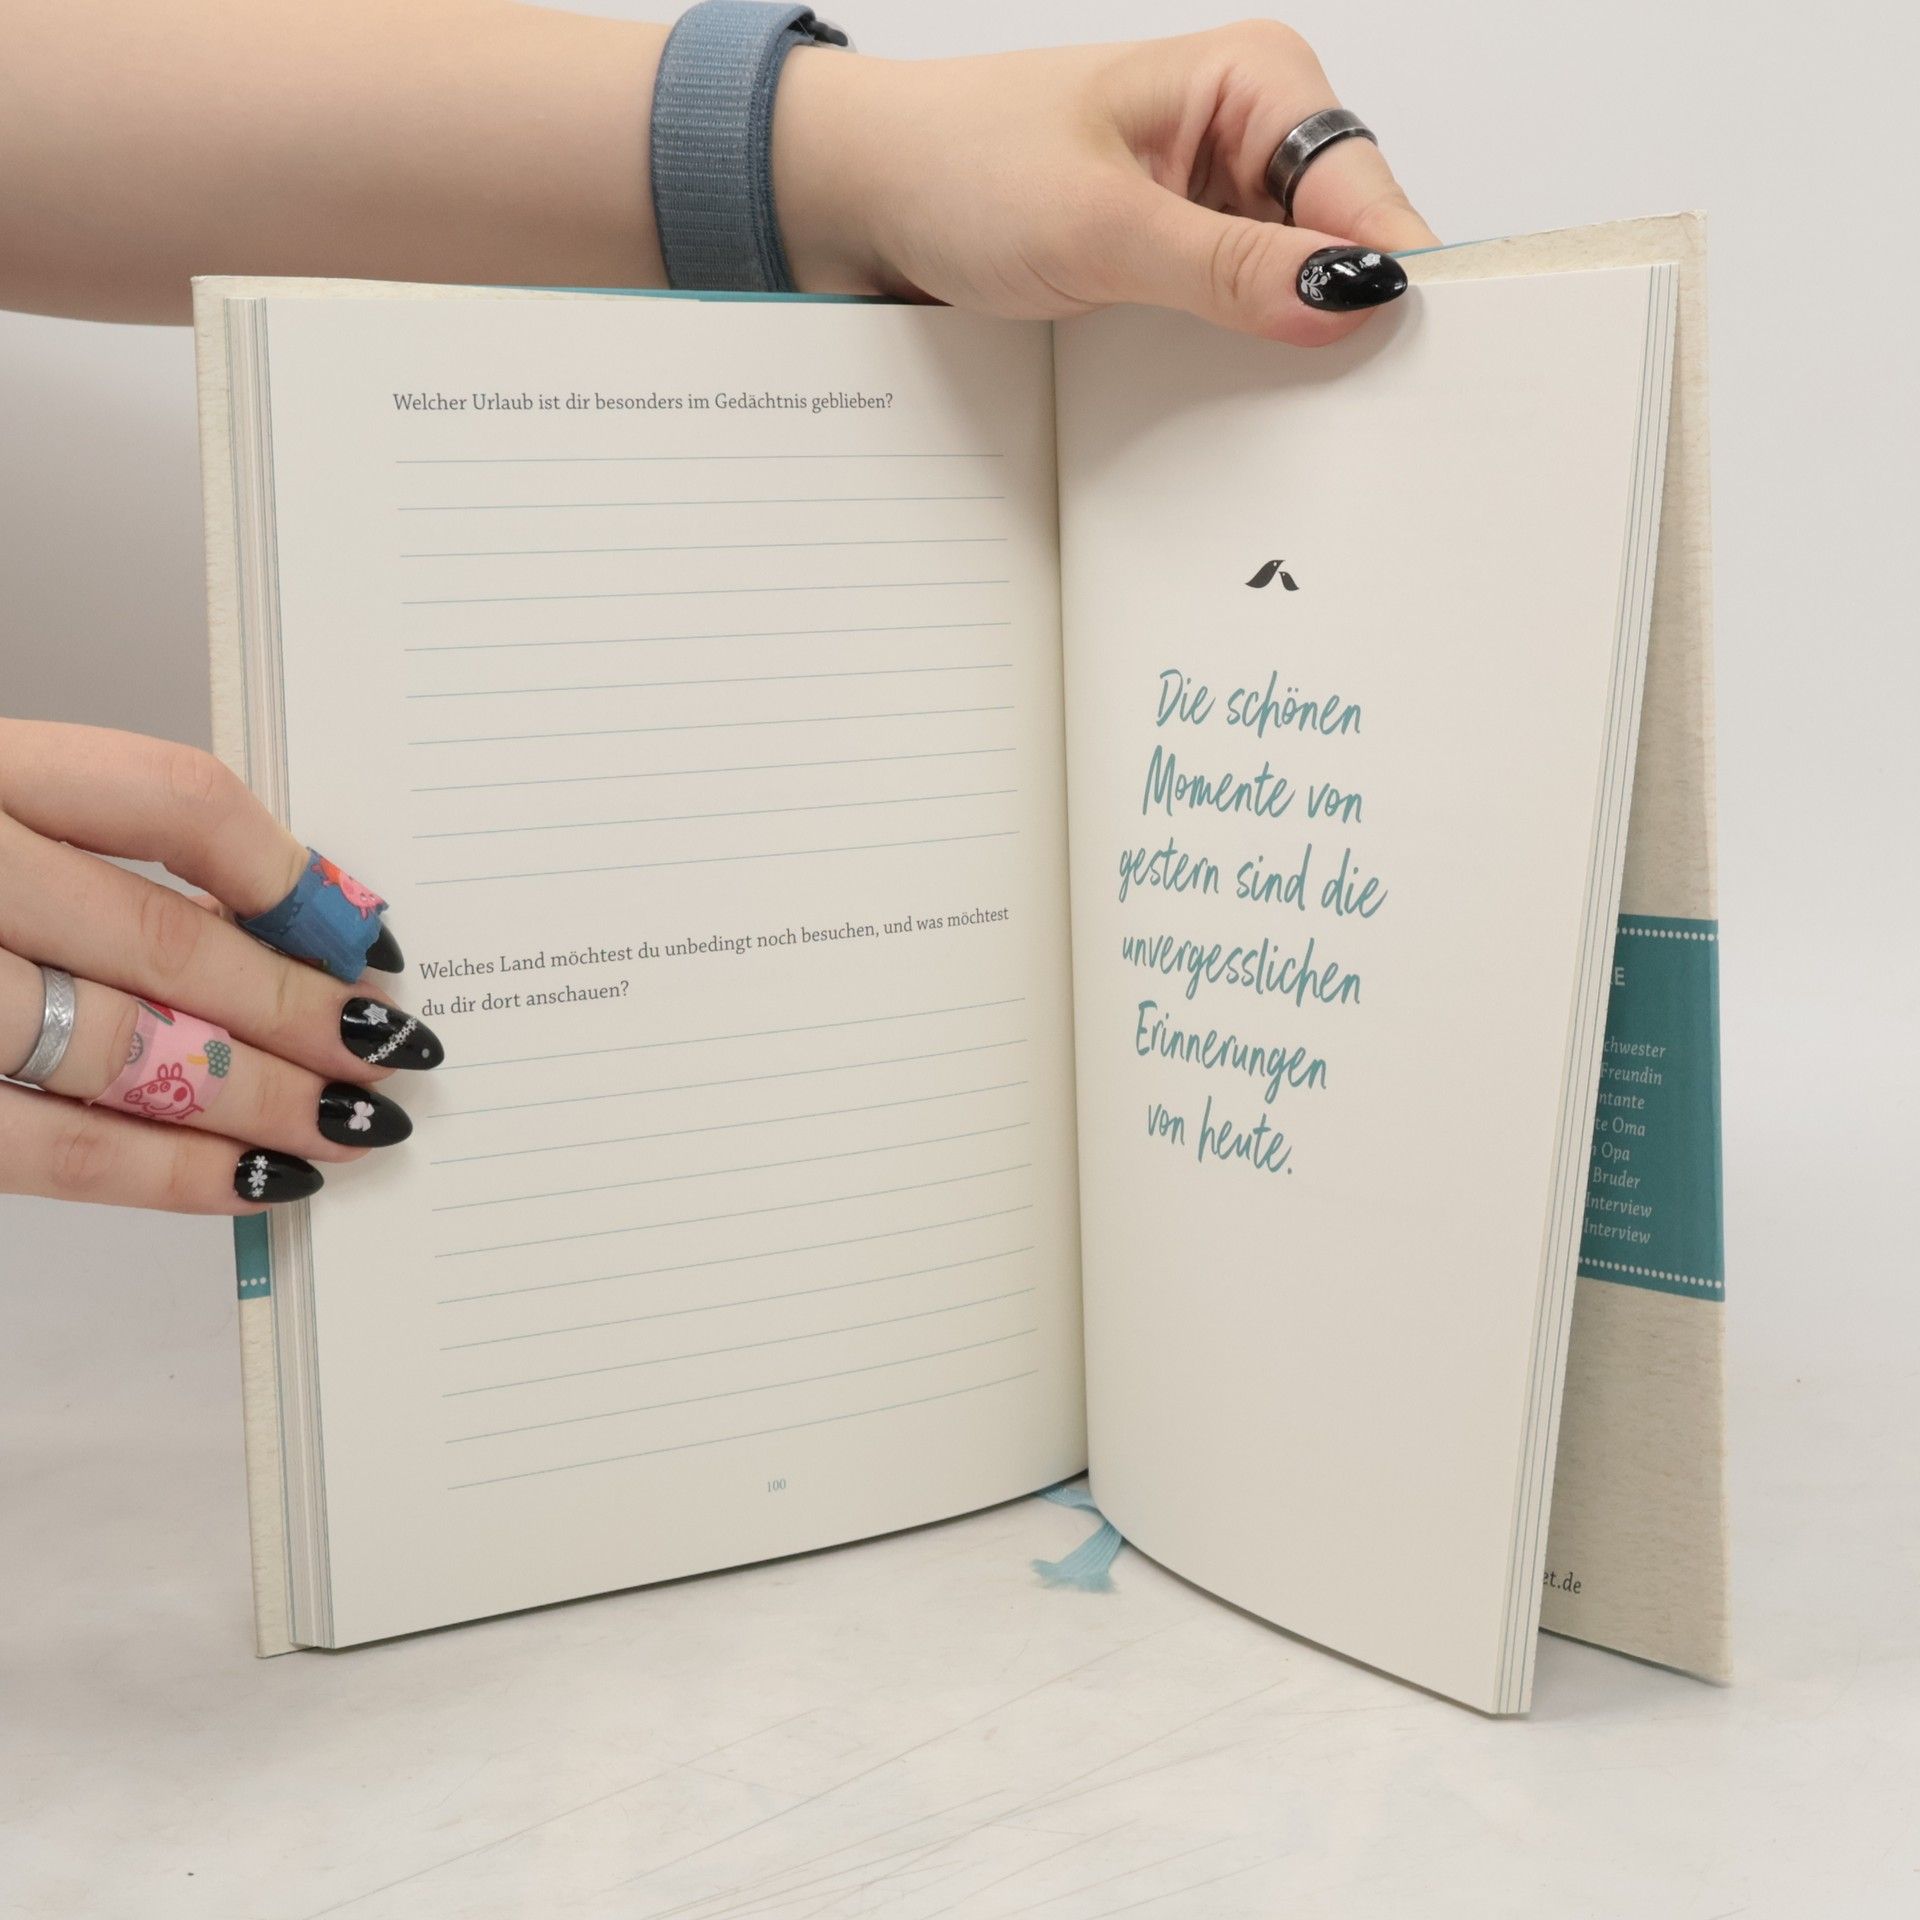 Welcher Urlaub ist dir besonders im Gedächtnis geblieben?
Welches Land möchtest du unbedingt noch besuchen, und was möchtest
du dir dort anschauen?
100
Die schönen
Momente von
gestern sind die
unvergesslichen
Erinnerungen
von heute.
RE
chwester
Freundin
ntante
te Oma
n Opa
Bruder
Interview
Interview
et.de